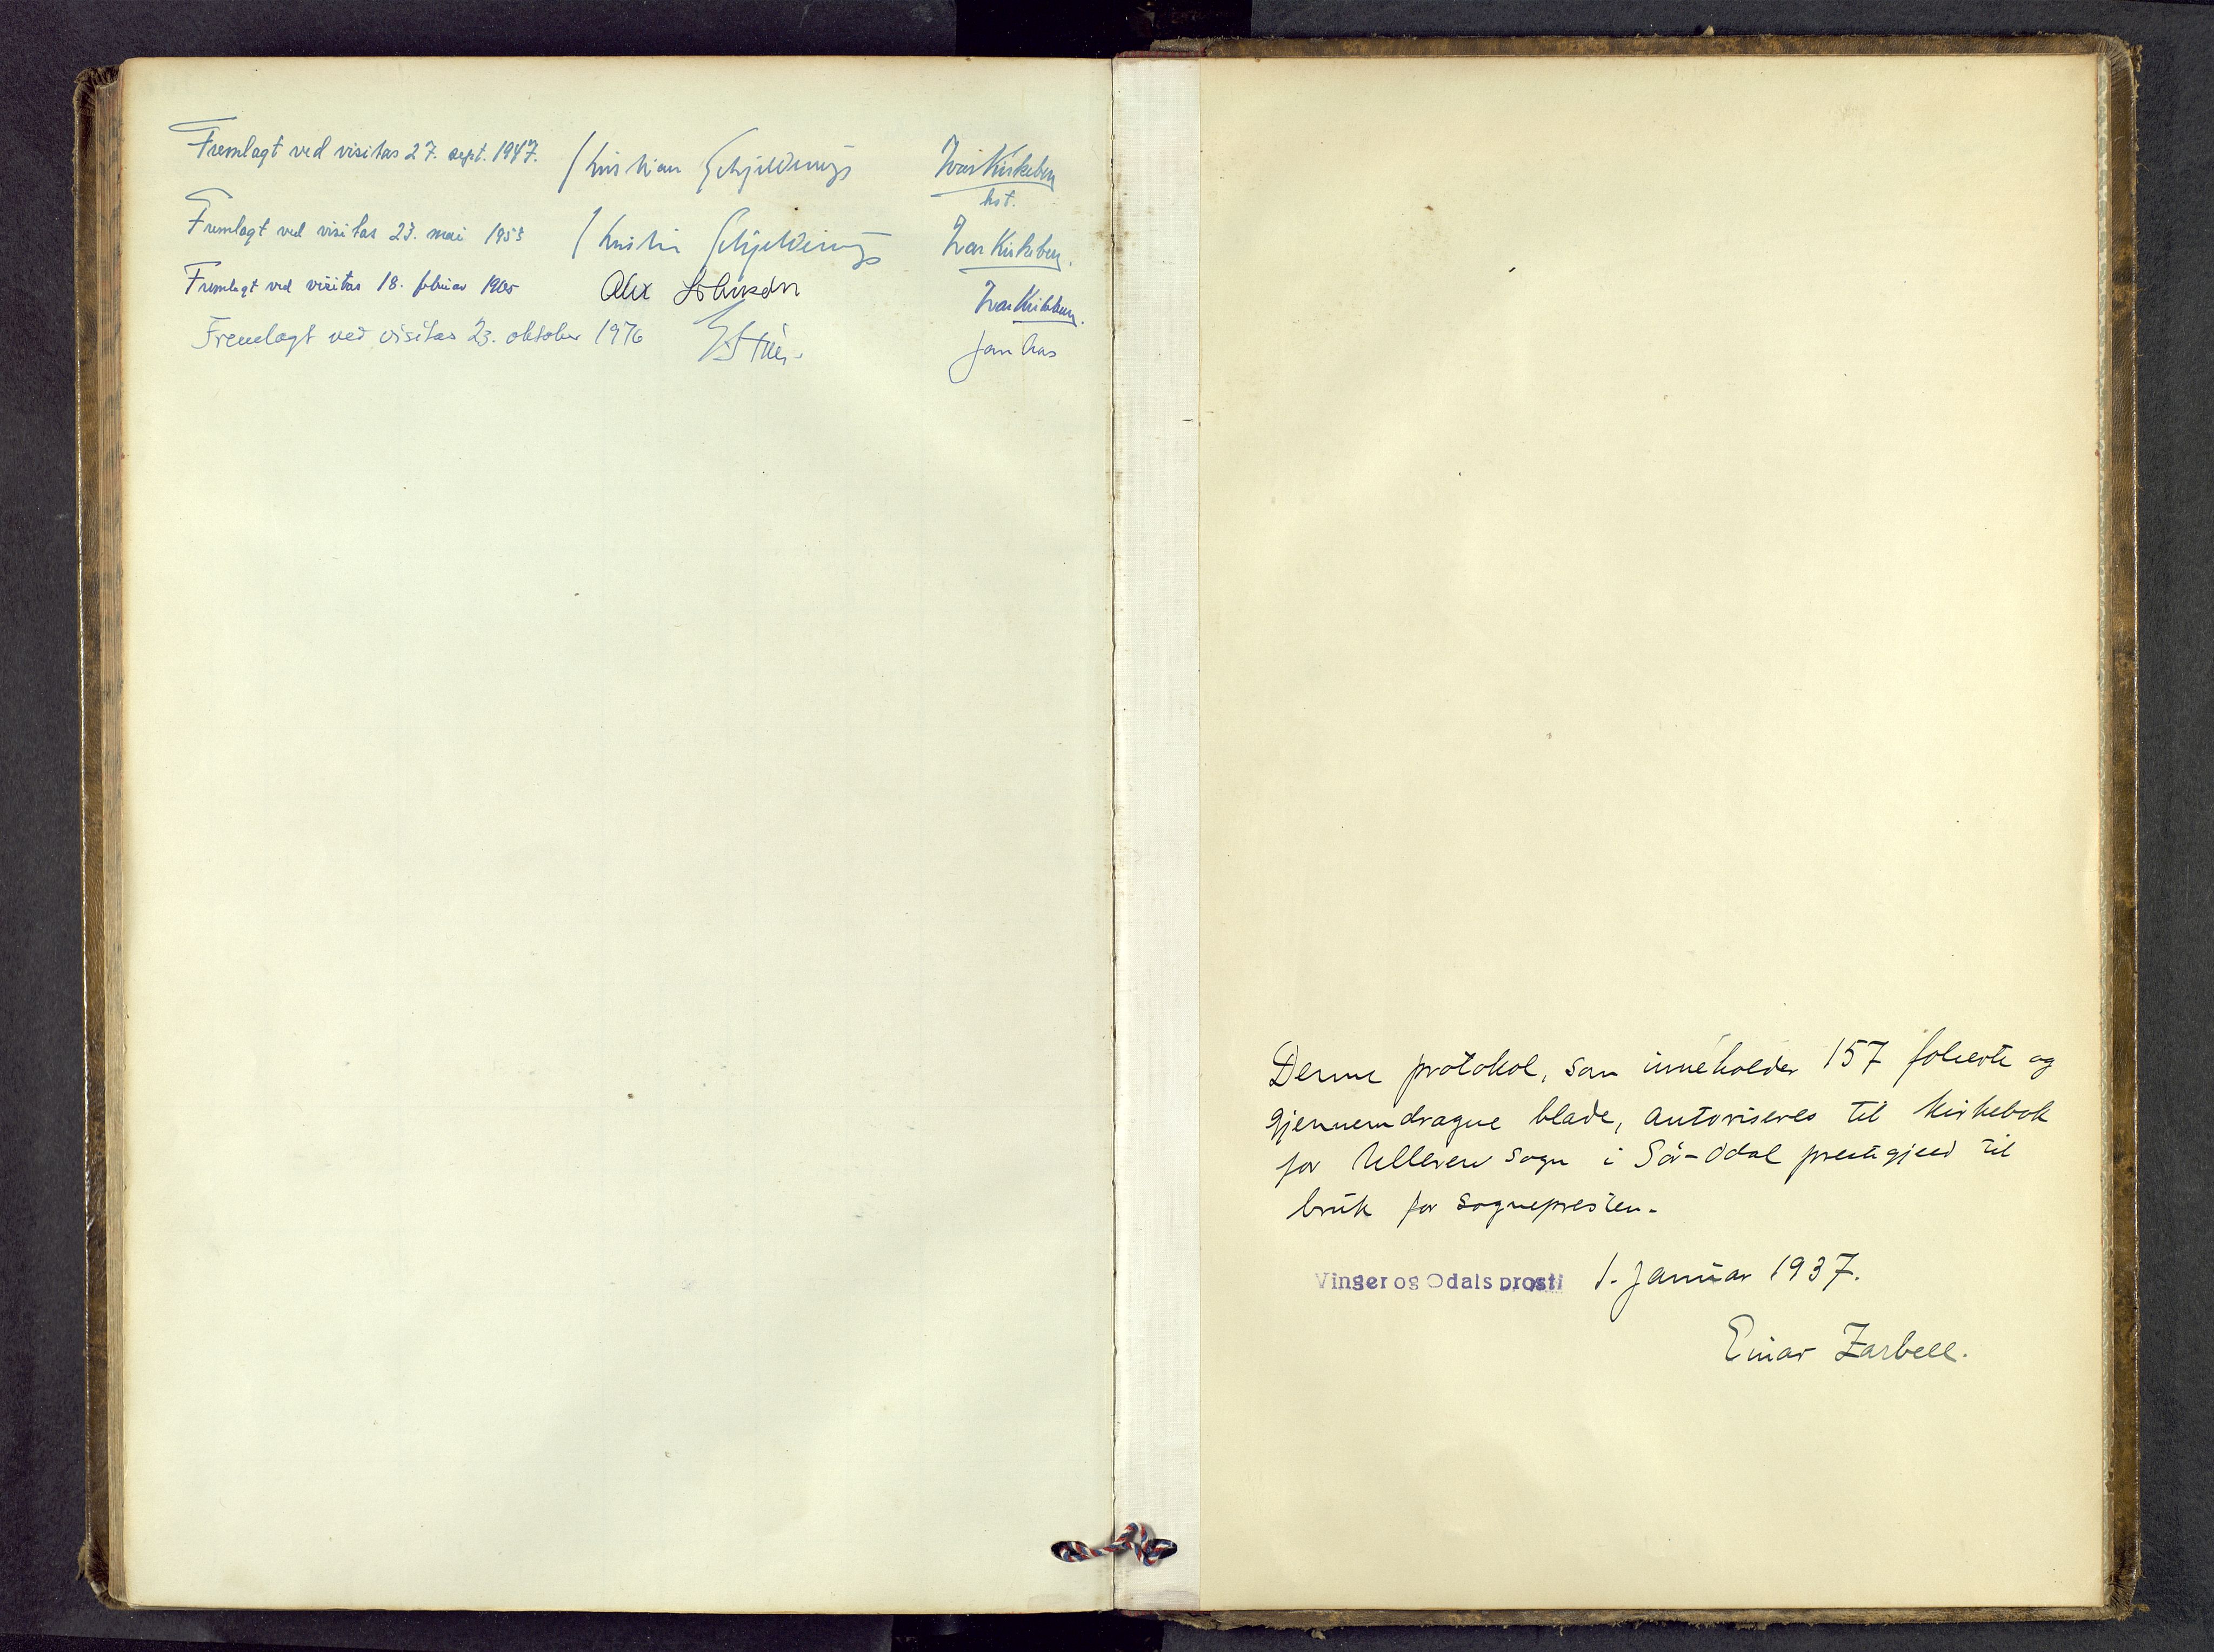 Fremlagt ved visitas 27. sept. 1947. Kristian Schjelderup Ivar Kirkeben
kst.
Fremlagt ved visitas 23. mai 1955 Kristian Schjelderup Ivar Kirkeben.
Fremlagt ved visitas 18. februar 1965 Alex Johnson Ivar Kirkeben.
Fremlagt ved visitas 23. oktober 1976 Jan Aas
Denne protokol, som inneholder 157 folierte og
gjennemdragne blade, autoriseres til kirkebok
for Ulleren sogn i Sör-Odal prestegjeld til
bruk for sognepresten.
Vinger og Odals prosti 1. januar 1937.
Einar Zarbell.